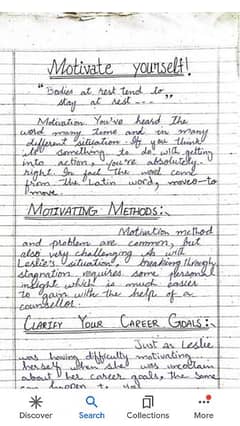 Motivate yourself!
"Bodies at rest tend to
stay at rest---"
Motivation. You've heard the
word many time and in many
different situation. If you think
it's something to do with getting
into action, you're absolutely
right. In fact the word come
from the Latin word, moveo-to
move.
MOTIVATING METHODS:-
Motivation method
and problem are common, but
also very challenging. As with
Leslie's situation, breaking through
stagnation requires some personal
insight which is much easier
to gain with the help of a
counsellor.
CLARIFY YOUR CAREER GOALS:-
Just as Leslie
was having difficulty motivating
herself when she was uncertain
about her career goals, the same
can happen to you
Discover
Search
Collections
More